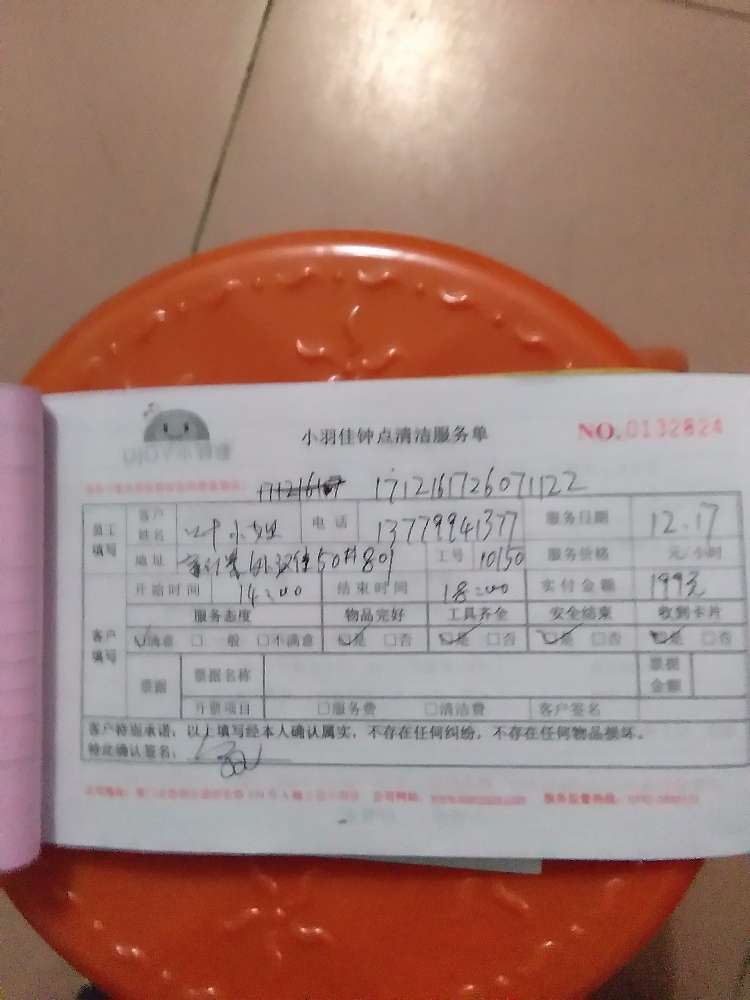 小羽佳钟点清洁服务单 NO.0132824
1712161726071122
员工填写 客户姓名 叶小姐 电话 13779941377 服务日期 12.17
地址 50 801 工号 10150 服务价格 元/小时
开始时间 14:00 结束时间 18:00 实付金额 199元
服务态度 物品完好 工具齐全 安全结束 收到卡片
客户填写 满意 一般 不满意 是 否 是 否 是 否 是 否
票据 票据名称 票据金额
开票项目 服务费 清洁费 客户签名
客户特别承诺：以上填写经本人确认属实，不存在任何纠纷，不存在任何物品损坏。
特定确认签名：
公司网站： 服务监督热线：